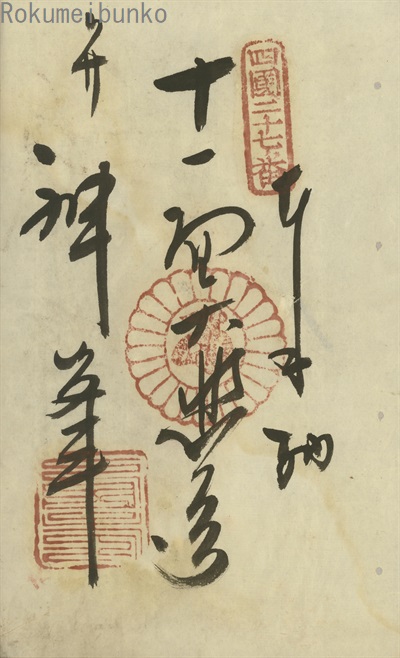 Rokumeibunko
四國二十七番
奉納
十一面大悲
神峯